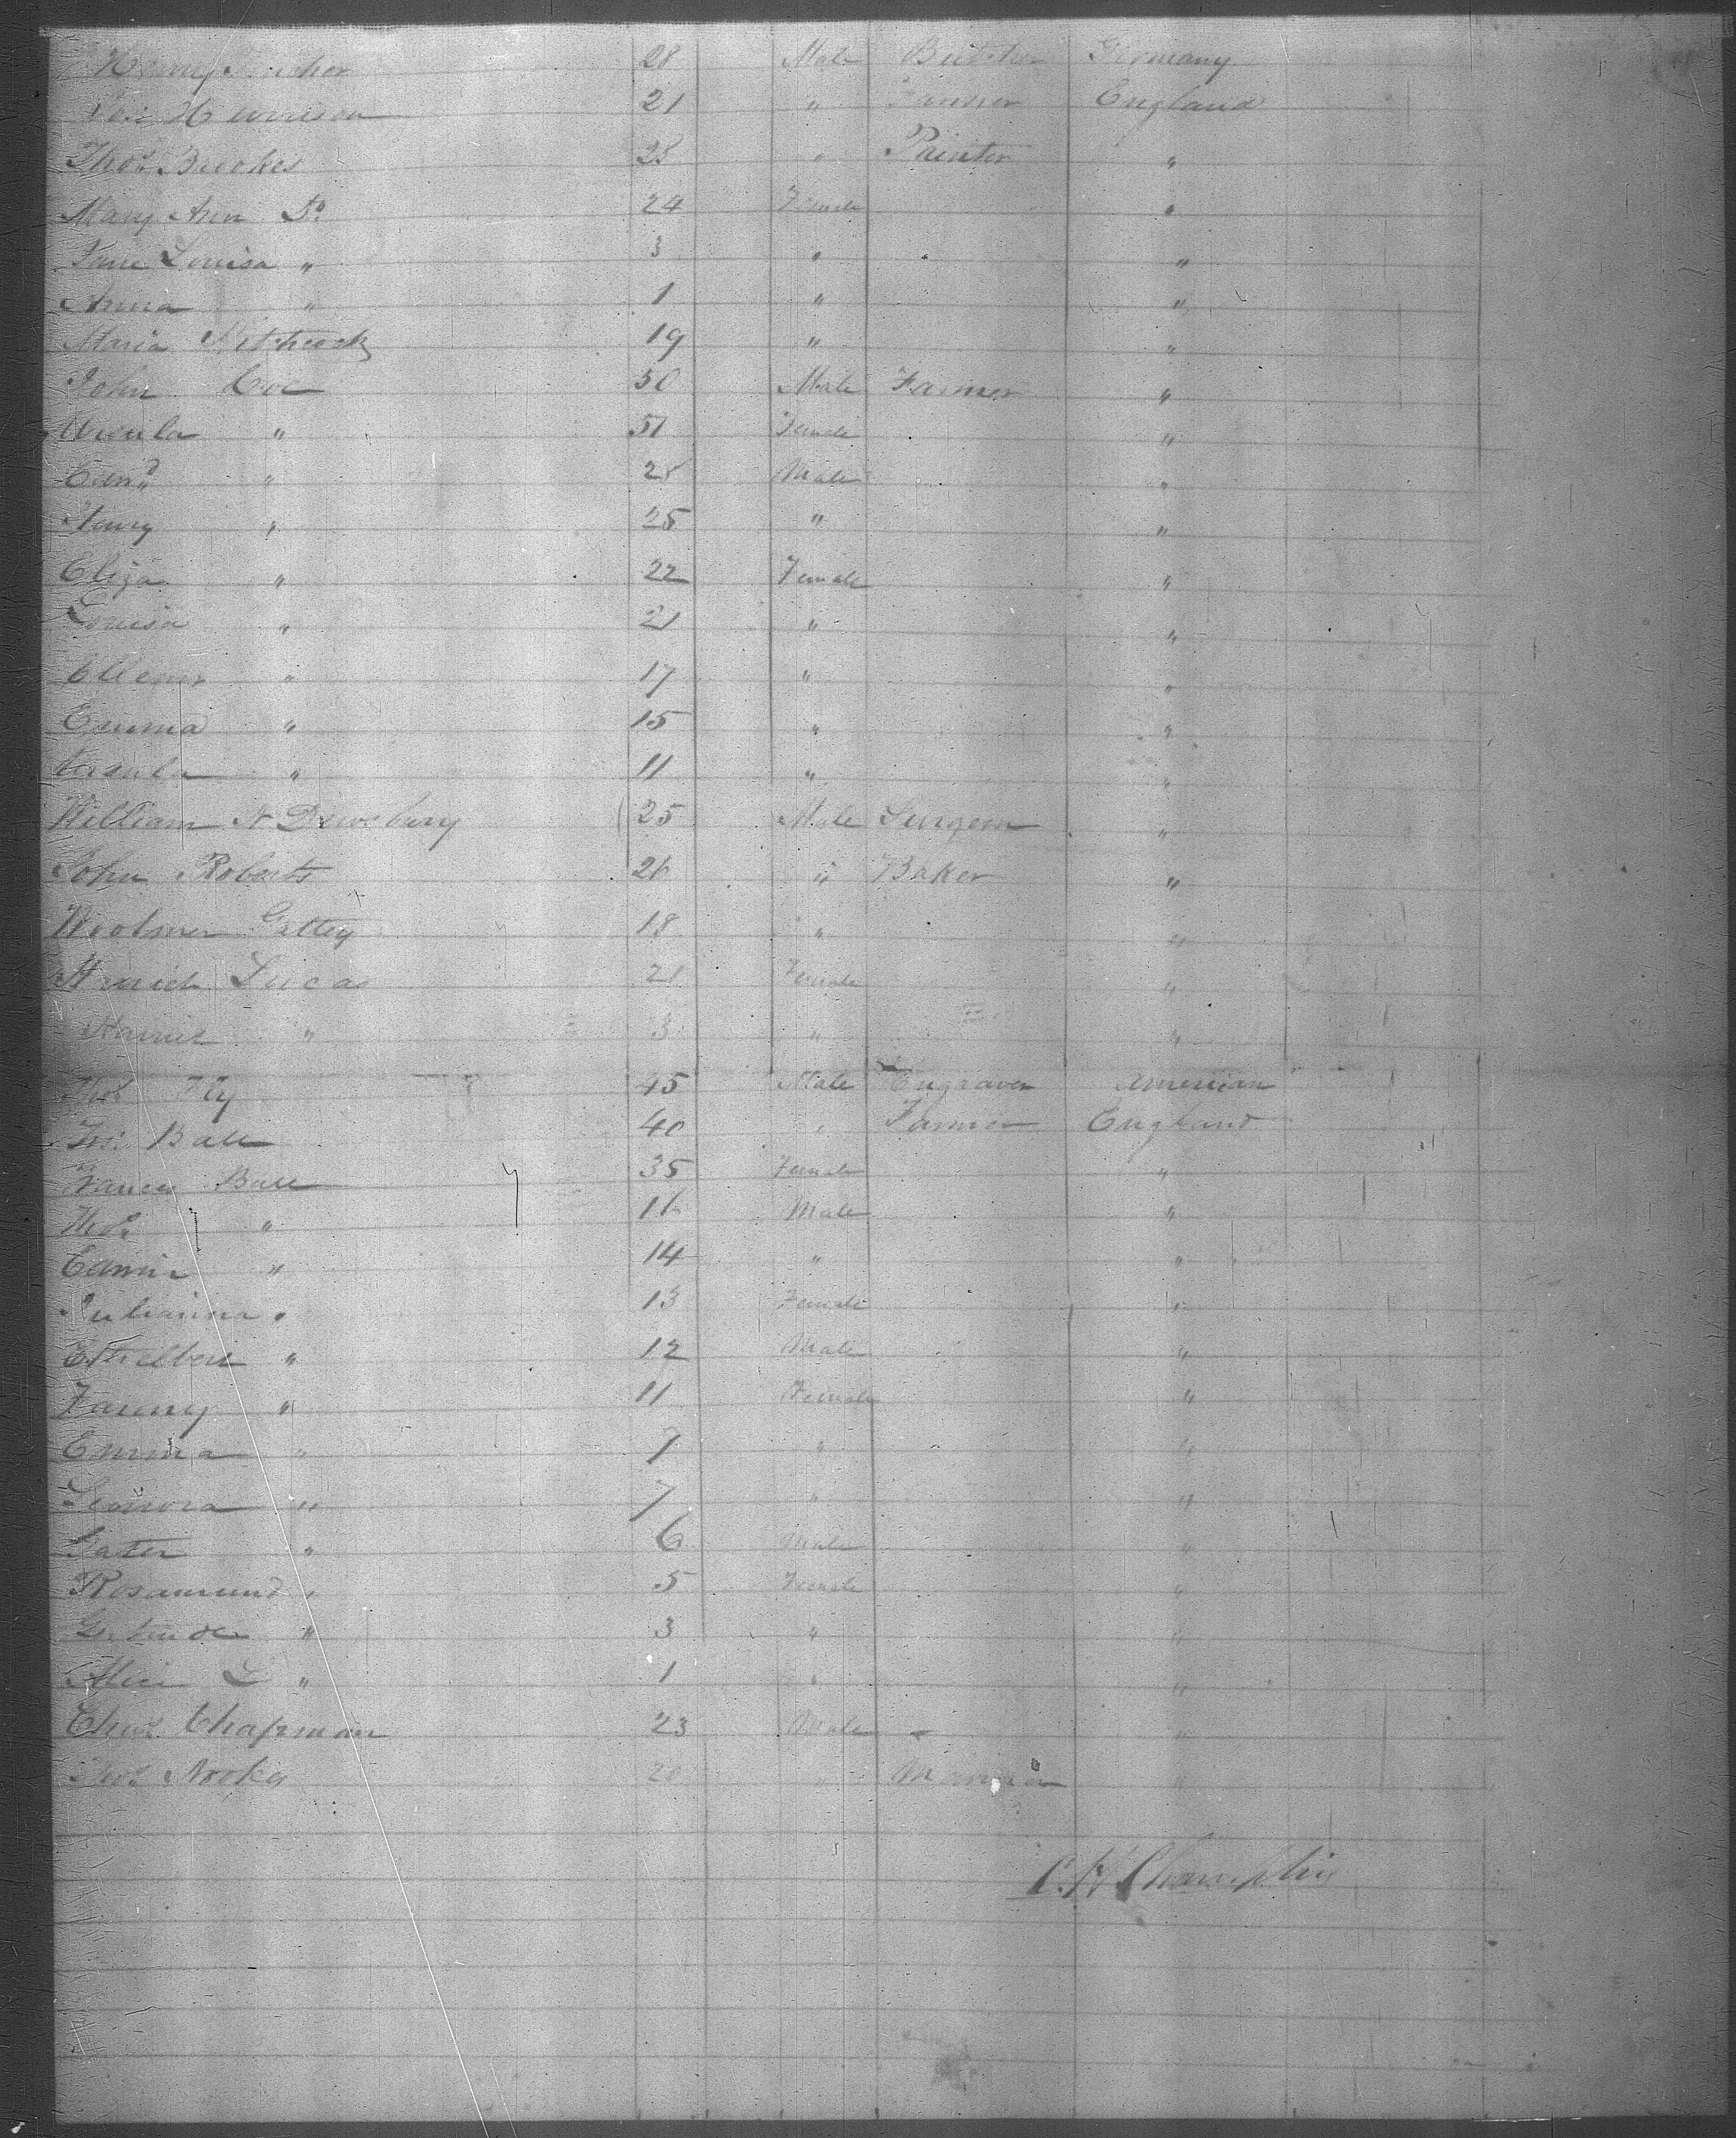 Henry 28 Male Butcher Germany
Harrison 21 " Farmer England
Thos Brookes 28 " Painter "
Mary Ann Do 24 Female "
Jane Louisa " 3 " "
Anna " 1 " "
Maria Hitchcock 19 " "
John Coe 50 Male Farmer "
Ursula " 51 Female "
Edmd " 28 Male "
Henry " 25 " "
Eliza " 22 Female "
Louisa " 21 " "
Ellener " 17 " "
Emma " 15 " "
Ursula " 11 " "
William N Dewsbury 25 Male Surgeon "
John Roberts 26 " Baker "
Woolmer Gattey 18 " "
Lucas 21 Female "
Harriet " 3 " "
Thos 45 Male Engraver American
Ball 40 " Farmer England
Frances Ball 35 Female "
Thos " 16 Male "
Edwin " 14 " "
Julianna " 13 Female "
Ethelbert " 12 Male "
Fanny " 11 Female "
Emma " 7 " "
Leonora " 7 " "
Gater " 6 Male "
Rosamund " 5 Female "
Gertrude " 3 " "
Alice L " 1 " "
Chas Chapman 23 Male - "
Thos Nookes 20 " "
C. H Champlin